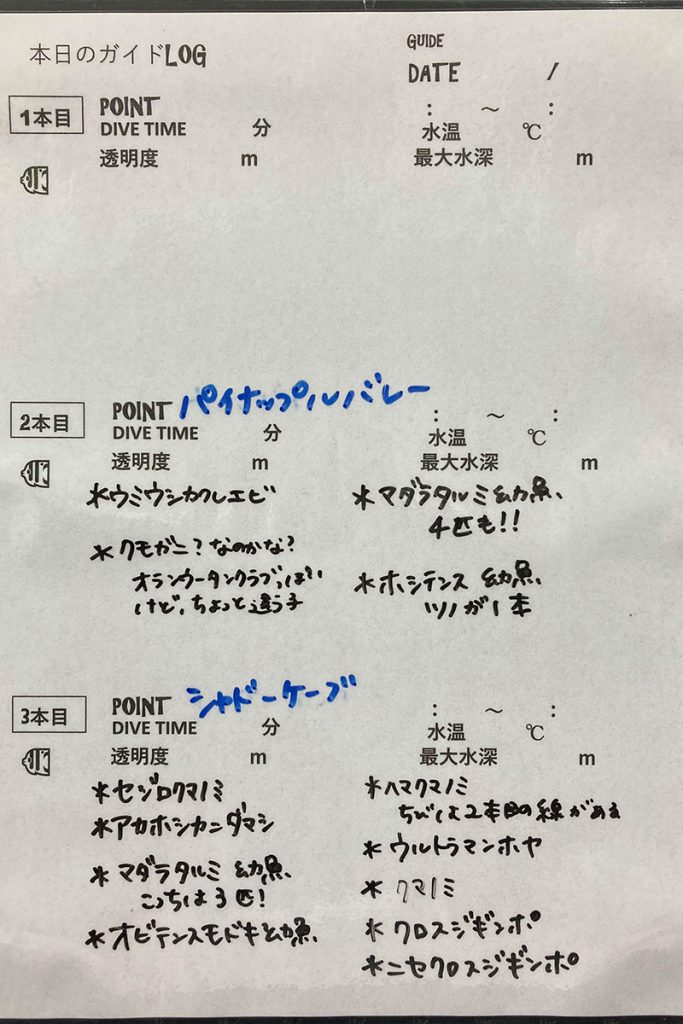 本日のガイドLOG
GUIDE
DATE /
1本目 POINT : ～ :
DIVE TIME 分 水温 ℃
透明度 m 最大水深 m
2本目 POINT パイナップルバレー : ～ :
DIVE TIME 分 水温 ℃
透明度 m 最大水深 m
*ウミウシカクレエビ
*クモガニ?なのかな?
オランウータンクラブっぽい
けど、ちょっと違う子
*マダラタルミ幼魚、
4匹も!!
*ホシテンス 幼魚、
ツノが1本
3本目 POINT シャドーケーブ : ～ :
DIVE TIME 分 水温 ℃
透明度 m 最大水深 m
*セジロクマノミ
*アカホシカニダマシ
*マダラタルミ 幼魚、
こっちは3匹!
*オビテンスモドキ幼魚、
*ハマクマノミ
ちびは2本目の線がある
*ウルトラマンホヤ
*クマノミ
*クロスジギンポ
*ニセクロスジギンポ